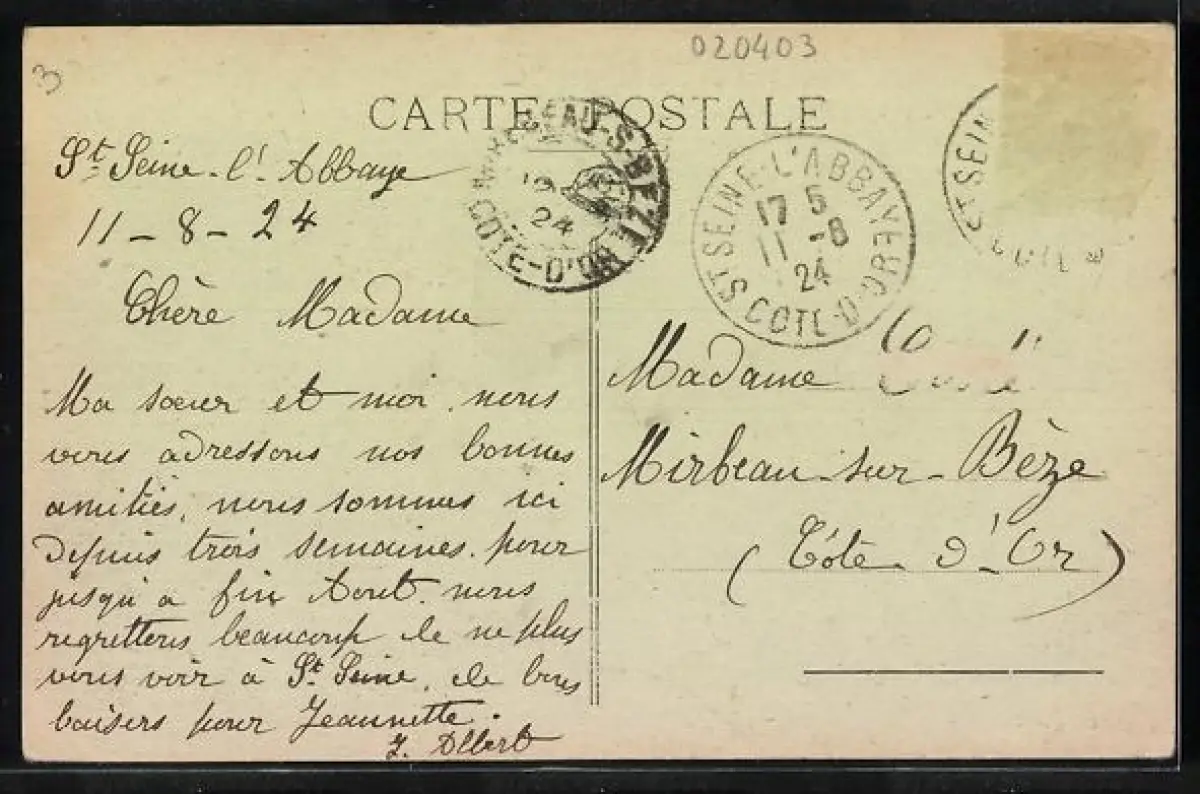 020403
3
CARTE POSTALE
St Seine-l'Abbaye
11-8-24
Chère Madame
Ma sœur et moi nous
vous adressons nos bonnes
amitiés, nous sommes ici
depuis trois semaines. pour
jusqu'a fin Aout. nous
regrettons beaucoup de ne plus
vous voir à St Seine, de bons
baisers pour Jeannette.
J. Albert
S-BEZE
24
COTE-D'OR
ST SEINE-L'ABBAYE
17 5
11 -8
24
COTE-D'OR
ST SEIN
Madame
Mirbeau-sur-Bèze
(Côte-d'Or)